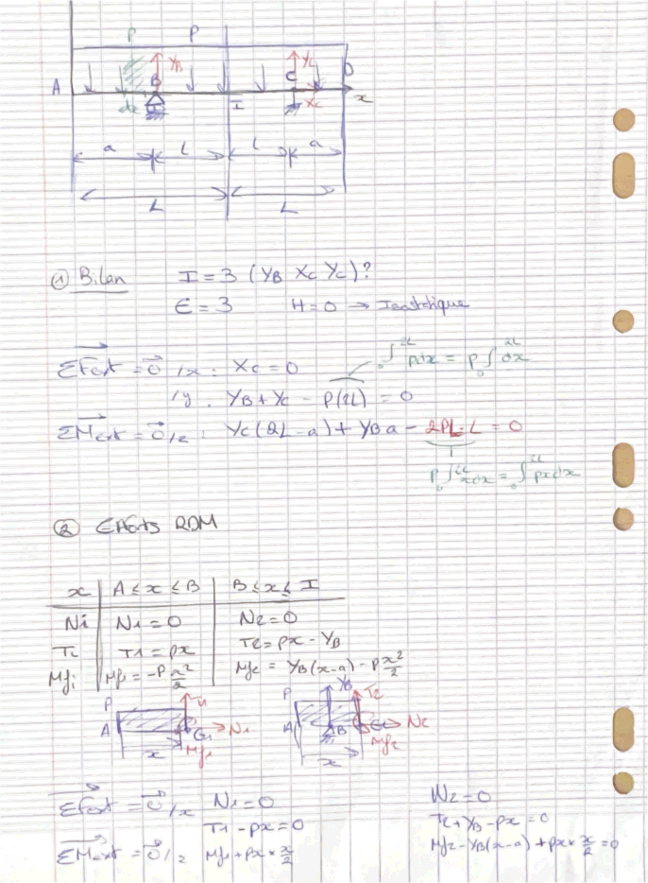 P P
Y_B Y_C
A B I C D
dx X_C x
a L L a
L L
① Bilan I = 3 (Y_B X_C Y_C)?
E = 3 H = 0 → Isostatique
ΣFext = 0 /x : X_C = 0 ∫₀^2L pdx = p∫₀^2L dx
/y : Y_B + Y_C - P(2L) = 0
ΣMext = 0 /z : Y_C(2L-a) + Y_B a - 2PL·L = 0
P∫₀^2L xdx = ∫₀^2L pxdx
② Efforts RDM
x | A ≤ x ≤ B | B ≤ x ≤ I
Ni | N1 = 0 | N2 = 0
Ti | T1 = px | T2 = px - Y_B
Mfi | Mf1 = -P x²/2 | Mf2 = Y_B(x-a) - P x²/2
P T1 P Y_B T2
A G1 N1 A B G2 N2
x Mf1 x Mf2
ΣFext = 0 /x N1 = 0 N2 = 0
T1 - px = 0 T2 + Y_B - px = 0
ΣMext = 0 /z Mf1 + px × x/2 Mf2 - Y_B(x-a) + px × x/2 = 0